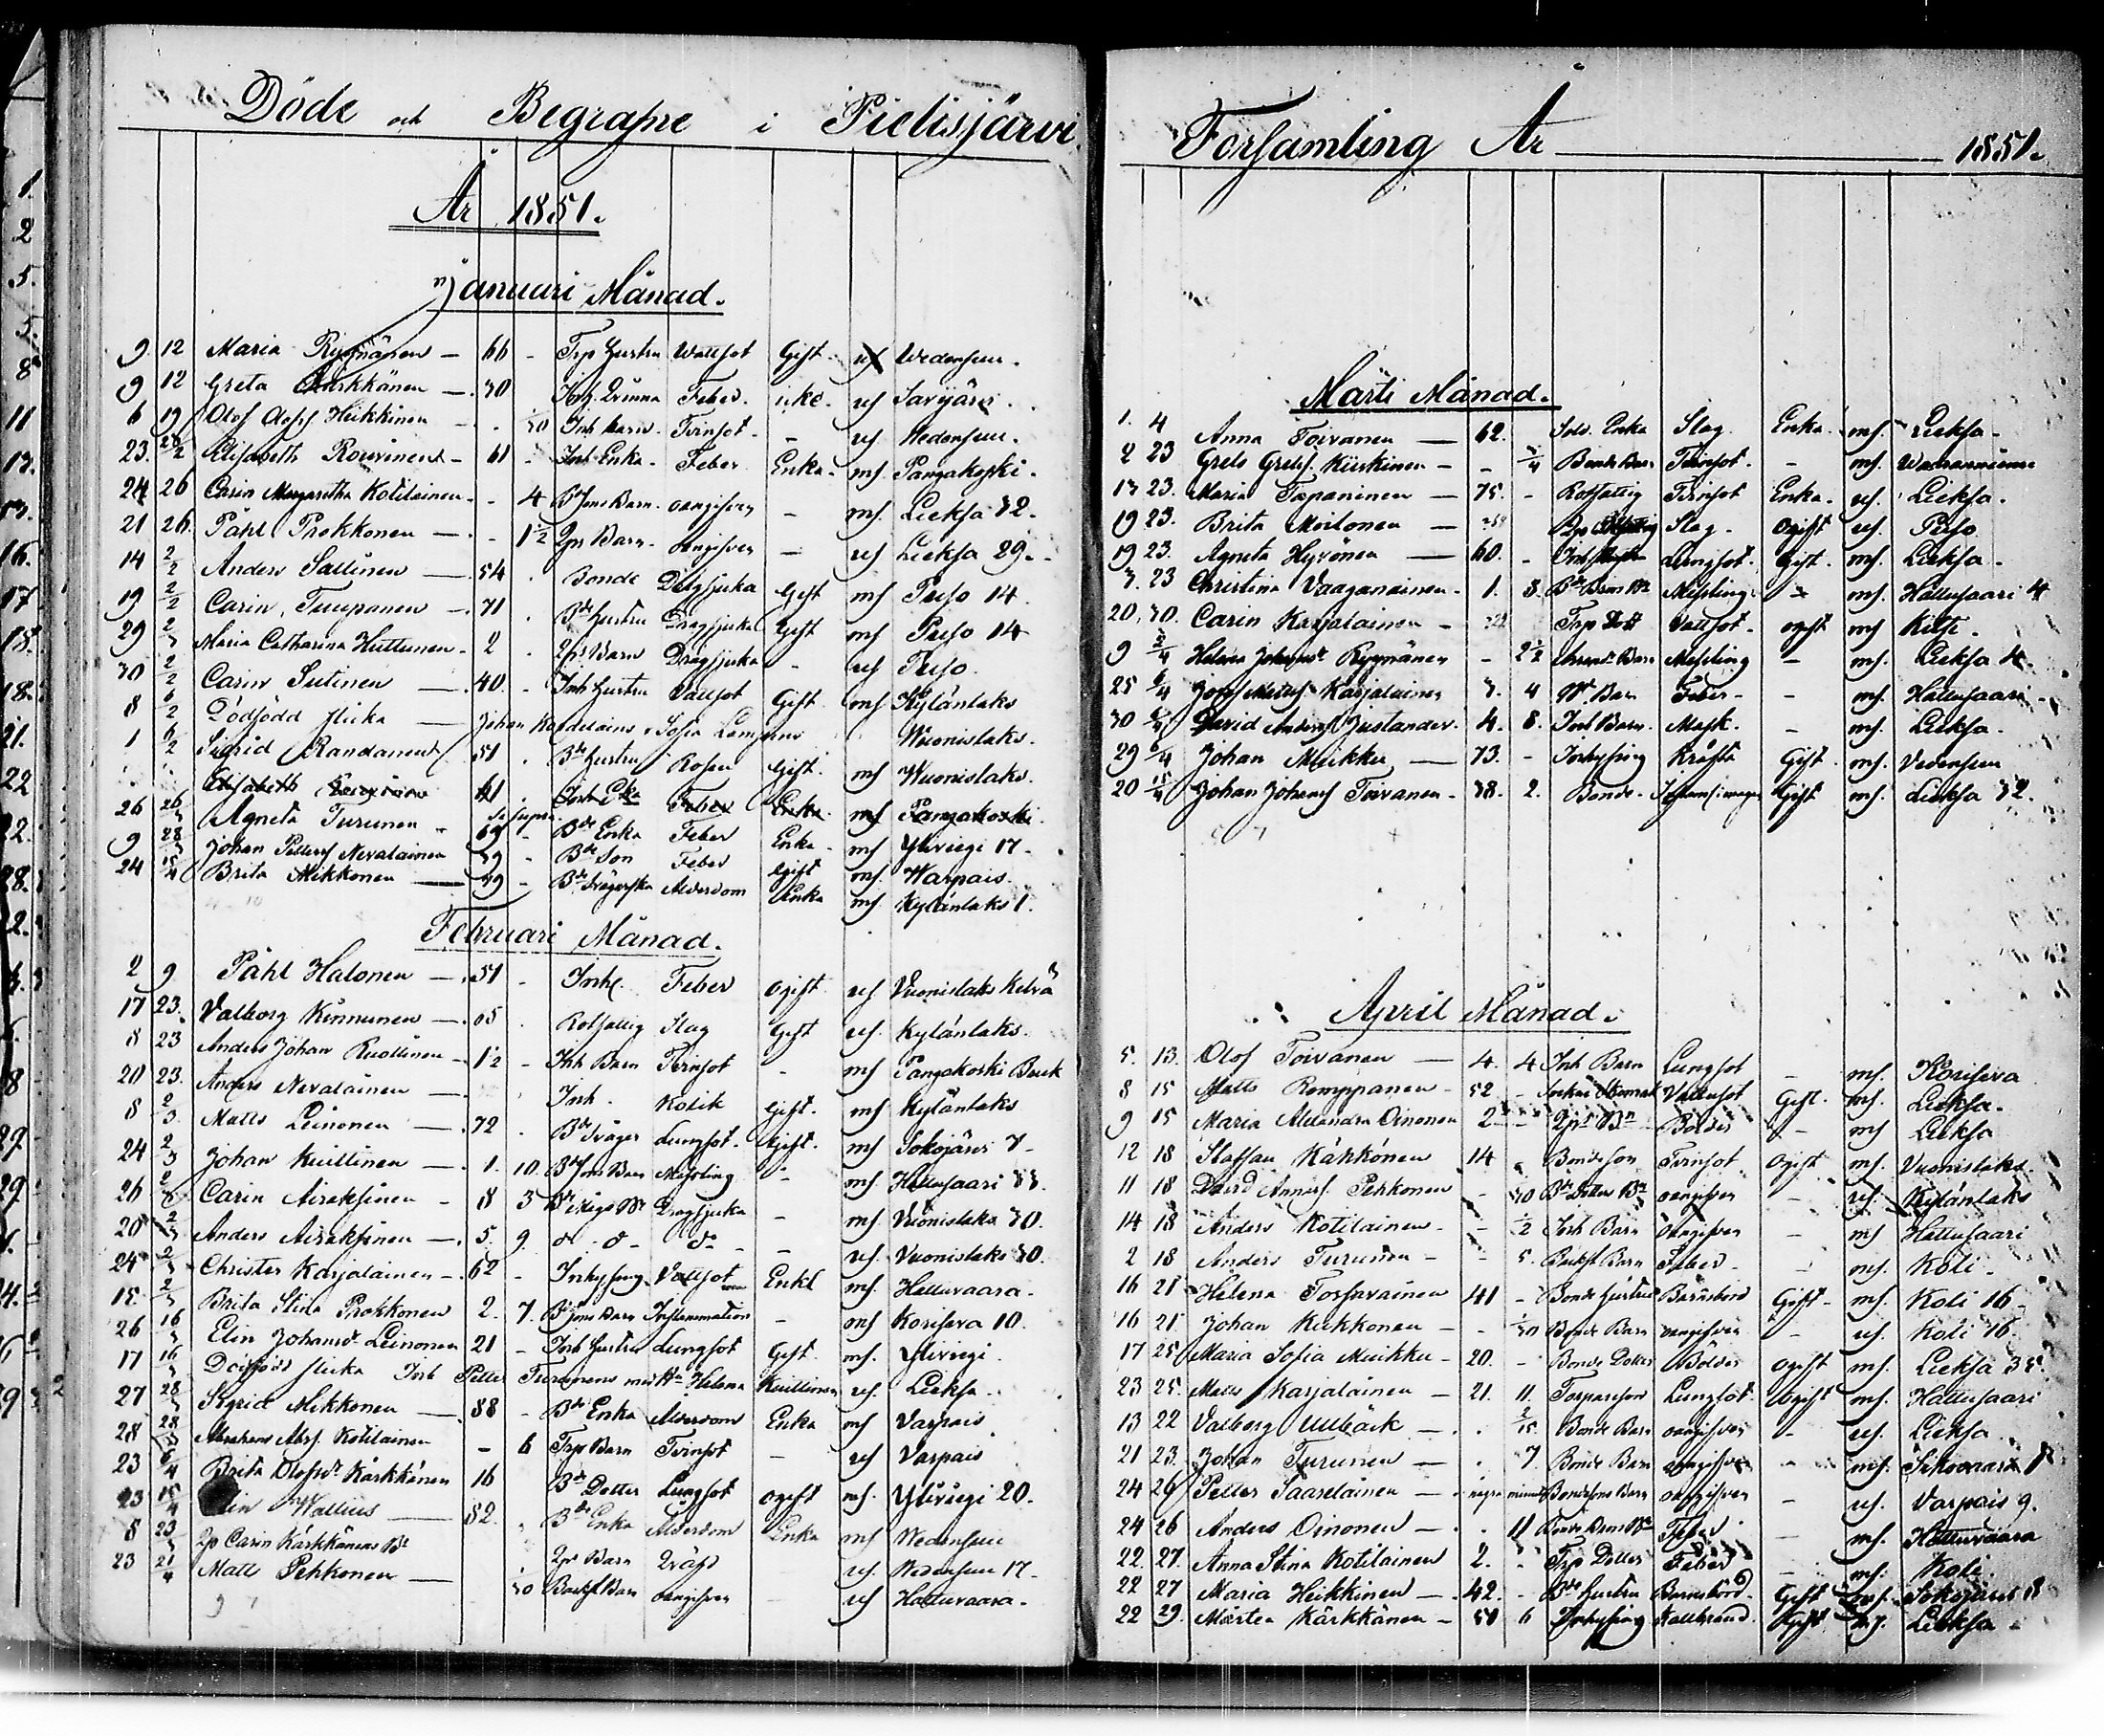 Döde och Begrafne i Pielisjärvi
År 1851.
Januari Månad.
9 12 Maria Ryynänen — 66 - Trp Hustru Wattsot Gift Wedensuu.
9 12 Greta Kärkkänen — 70 Feber. icke. uf Savijärvi
6 19 Olof Olofss Heikkinen - 1/30 Inh barn. Tvinsot - uf Wedensuu.
23. 2/2 Elisabeth Rouvinen - 61 - Inh Enka - Feber Enka - mf Pangakoski.
24 26 Carin Margaretha Kotilainen - - 4 Bd Sons Barn - oangifven - mf. Lieksa 32.
21 26. Påhl Prokkonen — - 1 1/2 2pr Barn - oangifven — uf Lieksa 29.
14 2/2 Anders Sallinen — 54 . Bonde Dragsjuka Gift mf Puso 14.
19 2/2 Carin Tuupanen — 71 . Bde Hustru Dragsjuka Gift mf Puso 14
29 2/3 Maria Catharina Huttunen - 2 . 2pr Barn Dragsjuka - uf Puso.
30 2/2 Carin Sutinen — 40. - Inh Hustru Vattsot Gift mf Kylänlaks
8 6/2 Dödfödd flicka — Johan Sofia Wuonislaks.
1 6/2 Sigrid Randanen 51 . Bde Hustru Rosen Gift. mf Wuonislaks.
Elisabeth 61 . Inh Enka Feber Enka mf Pangakoski.
26 26/3 Agneta Turunen - 69 - Bde Enka Feber Enka mf Yliviegi 17.
9 28/3 Johan Petterss Nevalainen 39 - Bde Son Feber Gift mf. Warpais.
24 15/4 Brita Mikkonen — 79 - Bde Svägerska Ålderdom Enka mf Kylänlaks 1.
Februari Månad.
2 9 Påhl Halonen — 51 - Inh. Feber Ogift uf Vuonislaks Kelvä
17 23. Valborg Kinnunen — 65 . Rotfattig Slag Gift uf. Kylänlaks.
8 23 Anders Johan Ruottinen - 1 1/2 - Inh Barn Tvinsot - mf Pangakoski Bruk
20 23. Anders Nevalainen — Inh. Kolik Gift. mf Kylänlaks
8 2/3 Matts Leinonen — 72 . Bde Svåger Lungsot. Gift. mf Sokojärvi 7.
24 2/3 Johan Kuittinen — 1. 10. Bd Sons Barn Messling - mf. Hattusaari 33.
26 2/3 Carin Airaksinen - 8 3 Dragsjuka - mf. Vuonislaks 30.
20 2/3 Anders Airaksinen — 5. 9. d o d:o - uf. Vuonislaks 30.
24 2/3 Christer Karjalainen - 62 - Inhysing Vattsot Enkl mf. Hattuvaara.
15 2/3 Brita Stina Prokkonen 2. 7. Bd Sons Barn Inflammation - mf Korisera 10.
26 16/3 Elin Johansdr Leinonen 21 - Inh Hustru Lungsot Gift. mf. Ylivieigi.
17 16/3 Dödfödd flicka Inh Petter Turunens med Hu Helena Kuittinen uf. Lieksa.
27 28/3 Sigrid Mikkonen — 88 - Bde Enka Ålderdom Enka mf Varpais
28 28/3 Abraham Abrs. Kotilainen - 6 Trp Barn Tvinsot — uf Varpais
23 6/4 Brita Olofsdr Kärkkänen 16 Bde Dotter Lungsot Ogift mf. Ylivieigi 20.
23 15/4 Wallius — 82. . Bde Enka Ålderdom Enka mf Wedensuu
8 23/3 2p Carin Kärkkänens Bt 2pr Barn Qväfd uf. Wedensuu 17.
23 21/4 Matt Pehkonen — 1/30 Backst Barn oangifven — uf Hattuvaara.
Forsamling År 1851.
Marti Månad.
1. 4 Anna Toivanen — 62. Sold. Enka Slag. Enka. mf. Lieksa.
2 23 Grels Grelss. Kiiskinen - - 3/4 Bonde Barn Tvinsot. - mf.
17 23. Maria Tapaninen — 75. - Rotfattig Tvinsot Enka. uf. Lieksa.
19 23. Brita Moilonen — Slag. Ogift uf. Puso
19 23. Agneta Hyvönen — 60. - Lungsot. Gift. mf. Lieksa.
7. 23 Christina Vaaganainen. 1. 8. Messling - mf. Hattusaari 4
20. 30. Carin Karjalainen - Trp Dott Vattsot. ogift mf Kitsi.
9 2/4 Helena Johansdr Ryynänen - 2 1/2 Arrend. Barn Messling - mf. Lieksa 4.
25 6/4 Josef Mattss Karjalainen 3. 4 Barn Feber - - mf. Hattusaari
30 6/4 David Anderss Justander. 4. 8. Inh Barn. Mask. - mf. Lieksa.
29 6/4 Johan Muikku — 73. - Inhysing Kräfta Gift. mf. Vedensuu
20 15/4 Johan Johanss Toivanen. 38. 2. Bonde. Gift mf. Lieksa 32.
April Månad.
5. 13. Olof Toivanen — 4. 4 Inh Barn Lungsot - mf. Korisera
8 15 Matts Romppanen - 52 - Vattusot Gift. mf. Lieksa.
9 15 Maria Alexandra Oinonen 2 - 2pr Bn Bölder - mf Lieksa
12 18 Staffan Kähkönen 14 . Bondeson Tvinsot Ogift mf. Vuonislaks.
11 18 David Anderss. Pehkonen - 1/30 Bde Dotter Bn oangifven - uf. Kylänlaks
14 18 Anders Kotilainen - - 1/2 Inh Barn oangifven - mf Hattusaari
2 18 Anders Turunen - - 5. Backst Barn Feber. - mf. Koli.
16 21 Helena Torfvainen 41 - Bonde Hustru Barnsbörd Gift - mf. Koli 16.
16 21 Johan Kukkonen - - 1/30 Bonde Barn oangifven - uf. Koli 16.
17 25 Maria Sofia Muikku - 20. - Bonde Dotter Bölder ogift mf. Lieksa 35.
23 25. Matts Karjalainen - 21. 11. Torparson Lungsot. Ogift mf. Hattusaari
13 22 Valborg Ullbäck - . 2/15 Bonde Barn oangifven - uf. Lieksa
21 23. Johan Turunen — . 7 Bonde Barn oangifven - mf.
24 26 Petter Saarelainen — några minut Bondesons Barn oangifven - uf. Varpais 9.
24 26 Anders Oinonen — . 11 Feber - mf. Hattuvaara
22. 27. Anna Stina Kotilainen 2. . Trp Dotter Feber - mf. Koli.
22 27 Maria Heikkinen — 42. - Bde Hustru Barnsbörd. Gift mf. Sokojärvi 18
22 29. Mårten Kärkkänen — 50 6 Inhysing Kallbrand. Gift mf. Lieksa.